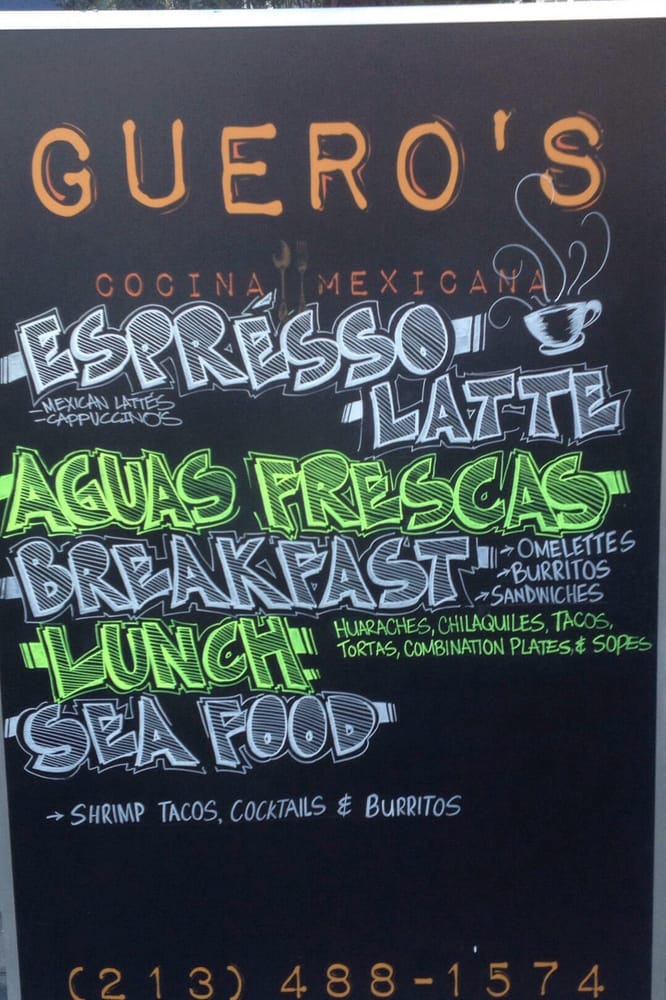 GUERO'S
COCINA MEXICANA
ESPRÉSSO
-MEXICAN LATTES
-CAPPUCCINOS
LATTE
AGUAS FRESCAS
BREAKFAST
→ OMELETTES
→ BURRITOS
→ SANDWICHES
LUNCH
HUARACHES, CHILAQUILES, TACOS,
TORTAS, COMBINATION PLATES, & SOPES
SEA FOOD
→ SHRIMP TACOS, COCKTAILS & BURRITOS
(213) 488-1574